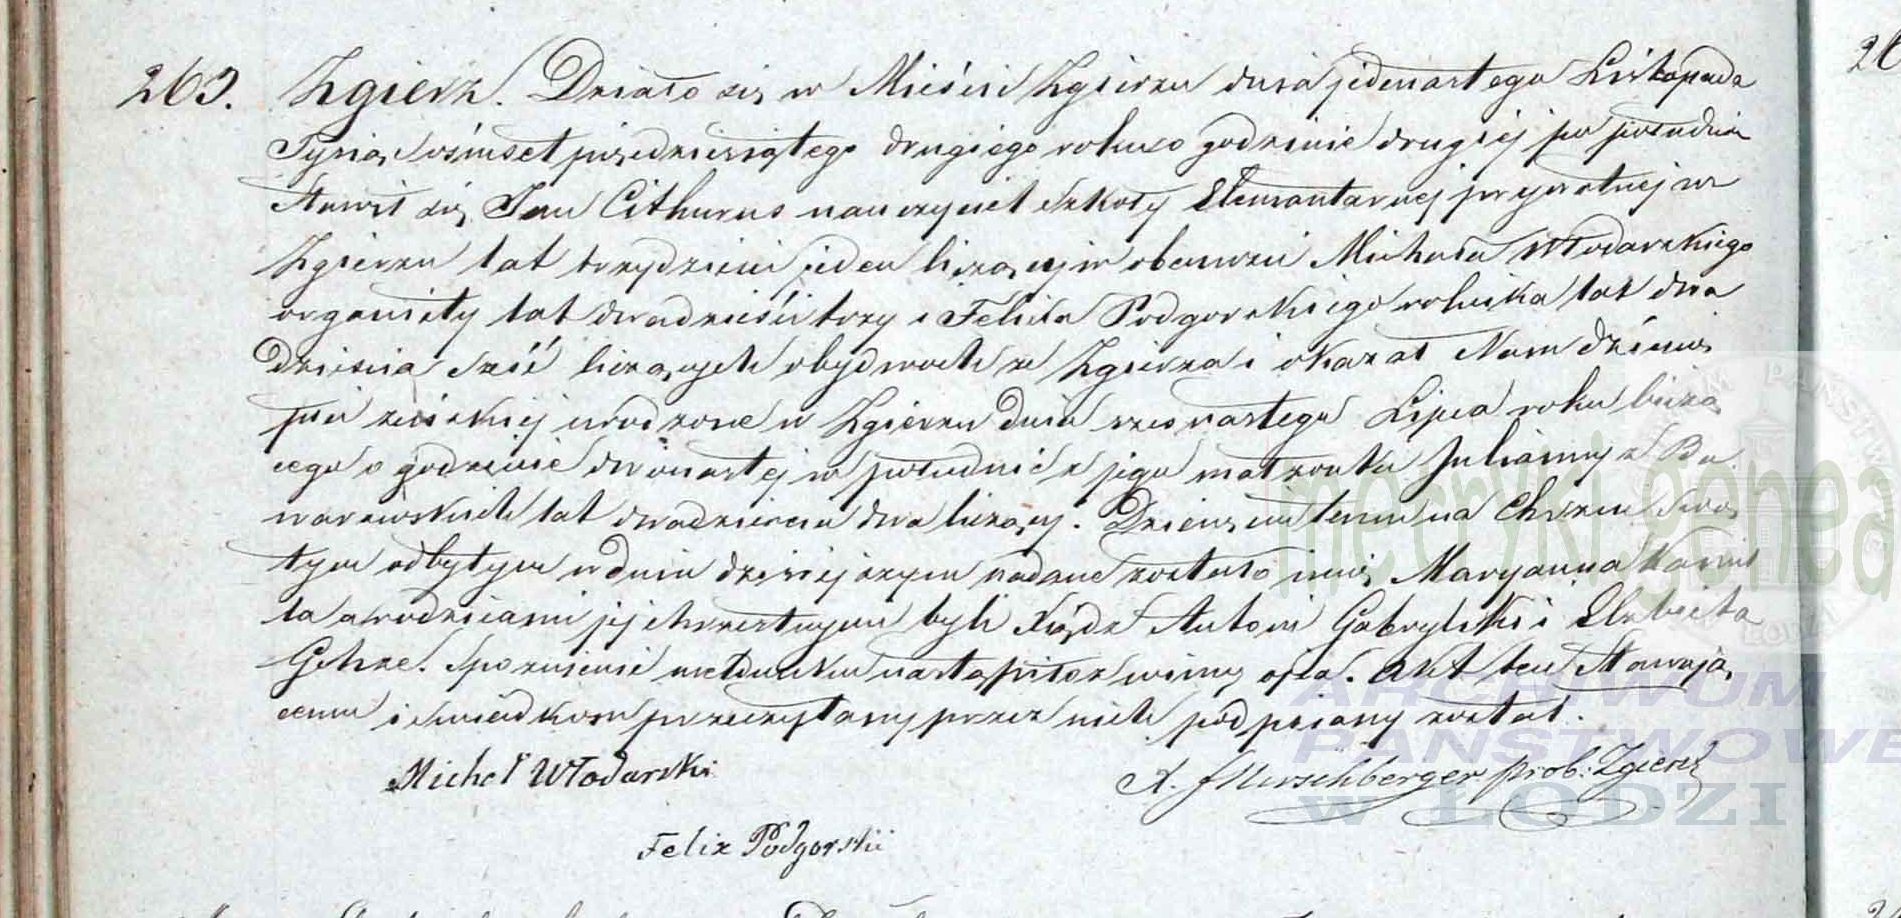 263. Zgierz. Działo się w Mieście Zgierzu dnia jedenastego Listopada
Tysiąc ośmset piędziesiątego drugiego roku o godzinie drugiej po południu
Stawił się Jan Cithurus nauczyciel szkoły Elementarnej prywatnej w
Zgierzu lat trzydzieści jeden liczący w obecności Michała Włodarskiego
organisty lat dwadzieścia trzy i Felixa Podgorskiego rolnika lat dwa
dzieścia sześć liczących obydwoch ze Zgierza i okazał Nam dziecię
płci żeńskiej urodzone w Zgierzu dnia szesnastego Lipca roku bieżą
cego o godzinie dwónastej w południe z jego małżonki Julianny z Ba
warawskich lat dwadzieścia dwa liczącej. Dziecięciu temu na Chrzcie Świę
tym odbytym w dniu dzisiejszym nadane zostało imię Maryanna Kamil
la a rodzicami jej chrzestnymi byli Xiądz Antoni Gabrylski i Elżbieta
Gehze. Spoznienie meldunku nastąpiło z winy ojca. Akt ten Stawają
cemu i świadkom przeczytany przez nich podpisany został.
Michał Włodarski
X. J Hirschberger prob. Zgierz
Felix Podgorskii
metryki.genea
ARCHIWUM
PAŃSTWOWE
W ŁODZI